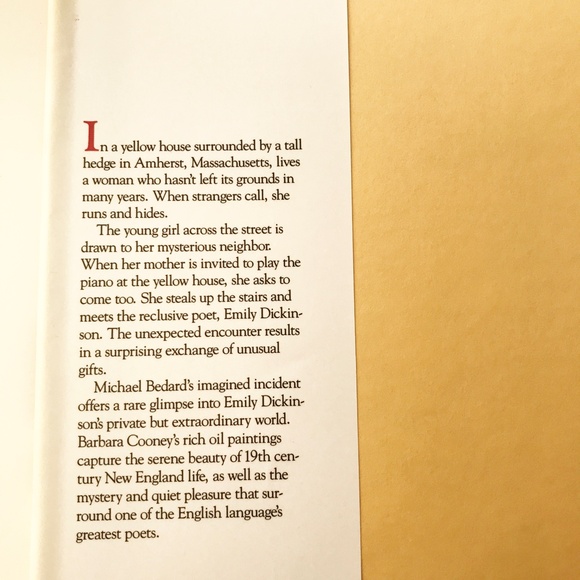 In a yellow house surrounded by a tall
hedge in Amherst, Massachusetts, lives
a woman who hasn't left its grounds in
many years. When strangers call, she
runs and hides.
The young girl across the street is
drawn to her mysterious neighbor.
When her mother is invited to play the
piano at the yellow house, she asks to
come too. She steals up the stairs and
meets the reclusive poet, Emily Dickin-
son. The unexpected encounter results
in a surprising exchange of unusual
gifts.
Michael Bedard's imagined incident
offers a rare glimpse into Emily Dickin-
son's private but extraordinary world.
Barbara Cooney's rich oil paintings
capture the serene beauty of 19th cen-
tury New England life, as well as the
mystery and quiet pleasure that sur-
round one of the English language's
greatest poets.